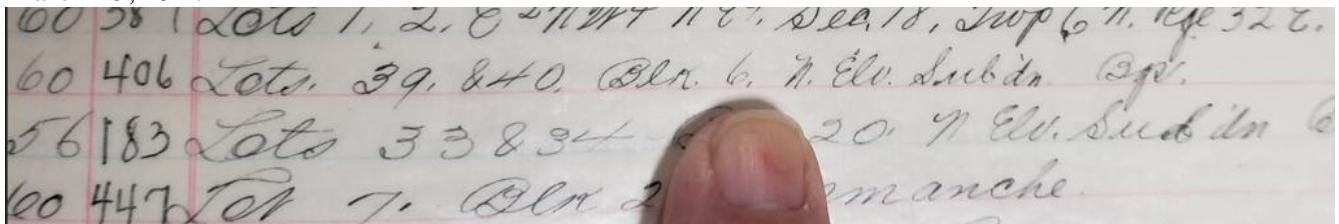 60 381 Lots 1, 2, E 2 NW4 NE4. Sec. 18, Twp 6 N. Rge 32 E.
60 406 Lots. 39, & 40. Blk. 6. N. Elv. Subdn
56 183 Lots 33 & 34 20. N Elv. Subdn
60 447 Lot 7. Blk 2 manche.